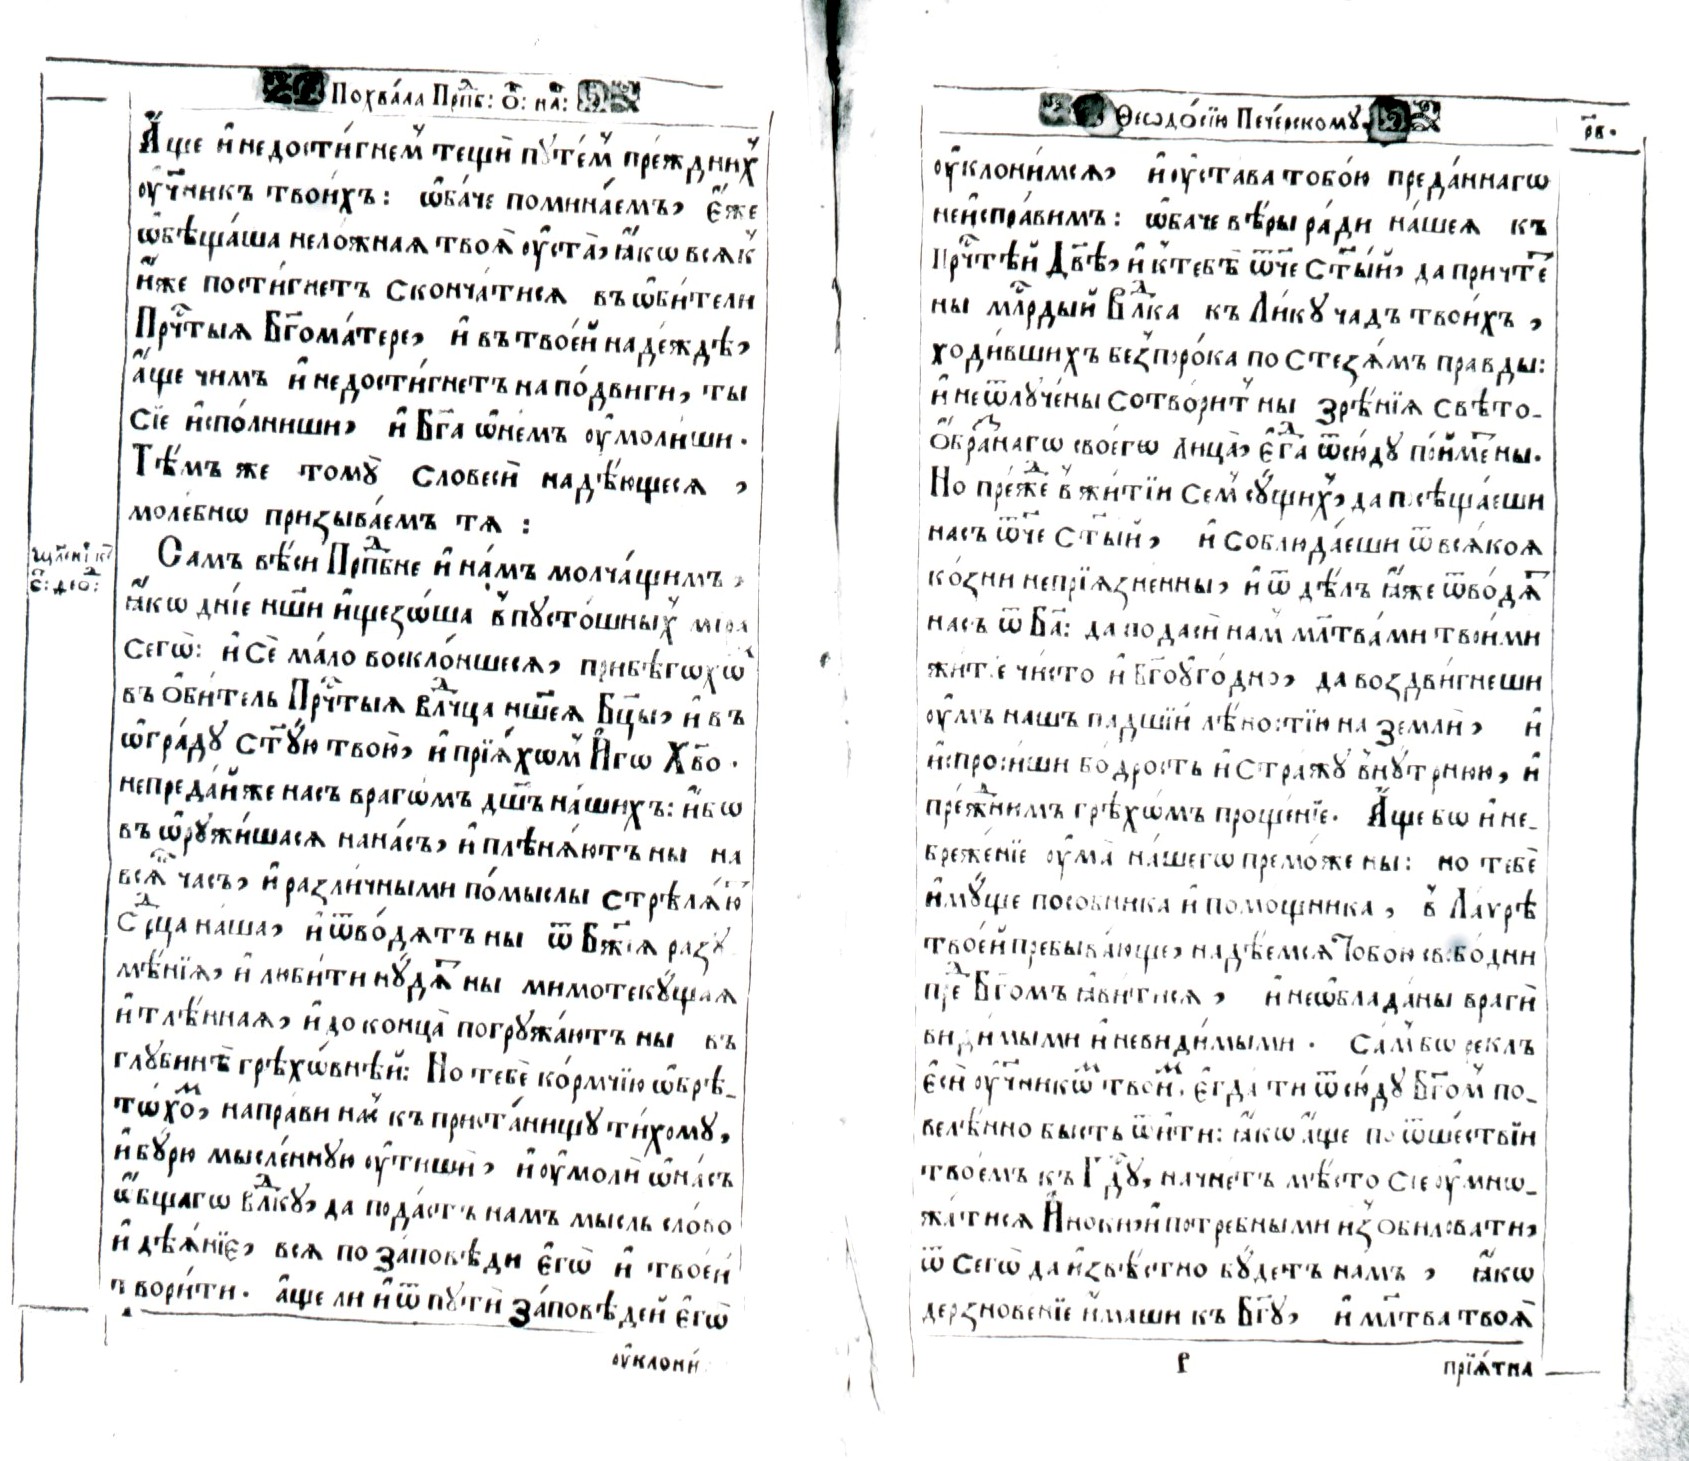 Похва́ла Прпⷣб: Ѻ҃: на́:
А҆́ще и҆ недости́гнемъ тещѝ пꙋте́мъ пре́ждних
ᲂу҆ч҃никъ твои́хъ: ѡ҆ба́че помина́емъ, Е҆́же
ѡ҆бѣща́ша нело́жнаѧ твоѧ̀ ᲂу҆ста̀, ꙗ҆́кѡ всѧ́к
и҆́же пости́гнетъ сконча́тисѧ въ ѡ҆би́тели
Прⷱ҇тыѧ Бг҃ома́тере, и҆ въ твое́й наде́ждѣ,
а҆́ще чимъ и҆ недости́гнетъ на по́двиги, ты
сїѐ и҆спо́лниши, и҆ Бг҃а ѡ҆ не́мъ ᲂу҆мо́лиши.
Тѣ́мъ же томꙋ̀ словесѝ надѣ́ющесѧ,
моле́бнѡ призыва́емъ тѧ:
Самъ вѣ́си Прпⷣбне и҆ на́мъ молча́щимъ,
ꙗ҆́кѡ дні́е нш҃и и҆щезо́ша в̾ пꙋсто́шных мі́ра
сегѡ̀: и҆ сѐ ма́ло восклѡ́ншесѧ, прибѣго́хѡ
въ ѻ҆би́тель Прⷱ҇тыѧ Влⷣчца нш҃еѧ Бц҃ы, и҆ въ
ѡ҆гра́дꙋ ст҃ꙋ́ю твою̀, и҆ прїѧ́хѡм И҆́гѡ Хв҃о.
непреда́й же насъ врагѡ́мъ дш҃ъ на́шихъ: и҆́бѡ
въ ѡ҆рꙋжи́шасѧ на на́съ, и҆ плѣнѧ́ютъ ны на
всѧ́ⷦ҇ часъ, и҆ разли́чными по́мыслы стрѣлѧ́ю
Срⷣца на́ша, и҆ ѿво́дѧтъ ны ѿ Бж҃їѧ разꙋ
мѣ́нїѧ, и҆ люби́ти нꙋ́дѧⷮ ны мимотекꙋ́щаѧ
и҆ тлѣ́ннаѧ, и҆ до конца̀ погрꙋжа́ютъ ны въ
глꙋбинѣ̀ грѣхо́внѣй: Но тебѐ ко́рмчїю ѡ҆брѣ-
то́хоⷨ, напра́ви нас къ приста́нищꙋ ти́хомꙋ,
и҆ бꙋ́рю мысле́ннꙋю ᲂу҆тишѝ, и҆ ᲂу҆молѝ ѡ҆ на́съ
ѡ҆́бщагѡ влⷣкꙋ, да пода́стъ намъ мысль сло́во
и҆ дѣѧ́нїе, всѧ по за́повѣди є҆гѡ̀ и҆ твое́й
твори́ти. а҆́ще ли и҆ ѿ пꙋтѝ за́повѣдей є҆гѡ̀
ᲂу҆клони́
Ѳеѡдо́сїю Пече́рскомꙋ.
рв.
ᲂу҆клони́мсѧ, и҆ ᲂу҆ста́ва тобо́ю преда́ннагѡ
неи҆спра́вимъ: ѡ҆ба́че вѣ́ры ра́ди на́шеѧ къ
Прⷱ҇тѣй Дв҃ѣ, и҆ к̾ тебѣ̀ ѿч҃е Ст҃ы́й, да причте́
ны млⷭ҇рдый Влⷣка къ Ли́кꙋ чадъ твои́хъ,
ходи́вшихъ без̾ поро́ка по стезѧ́мъ пра́вды:
и҆ не ѿлꙋче́ны сотвори́т ны зрѣ́нїѧ свѣто-
ѻ҆бра́ⷥнагѡ своегѡ̀ лица̀, є҆гⷣа̀ ѿсю́дꙋ по́йме ны.
Но пре́жⷣе в̾ жи́тїи семъ сꙋ́щих, да посѣща́еши
насъ ѿч҃е ст҃ы́й, и҆ соблюда́еши ѿ всѧ́коѧ
ко́зни непрїѧ́зненны, и҆ ѿ дѣ́лъ ꙗ҆́же ѿво́дѧⷮ
насъ ѿ Бг҃а: да подасѝ нам мл҃твами твои́ми
житїѐ чи́сто и҆ Бг҃оᲂуго́дно, да воздви́гнеши
ᲂу҆мъ нашъ па́дшїй лѣ́ностїю на землѝ, и҆
и҆спро́сиши бо́дрость и҆ стра́жꙋ внꙋ́трнюю, и҆
пре́жⷣнимъ грѣхѡ́мъ проще́нїе. А҆́ще бо и҆ не-
бреже́нїе ᲂу҆ма̀ на́шегѡ премо́же ны: но тебѐ
и҆мꙋ́ще посо́бника и҆ помо́щника, в̾ Ла́ѵрѣ
твое́й пребыва́юще, надѣ́емсѧ Тобо́ю свобо́дни
преⷣ Бг҃омъ ꙗ҆ви́тисѧ, и҆ неѡ҆блада́ны врагѝ
ви́димыми и҆ неви́димыми. Са́м бо ре́клъ
є҆сѝ ᲂу҆ч҃никѡⷨ твоиⷨ, є҆гда́ ти ѿсю́дꙋ Бг҃ом по-
велѣ́нно бысть ѿи́ти: ꙗ҆́кѡ а҆́ще по ѿше́ствїи
твое́мъ къ Гдⷭ҇ꙋ, начне́тъ мѣ́сто сїѐ ᲂу҆мно-
жа́тисѧ И҆́ноки, и҆ потре́бными из̾ ѻбиловати,
ѿ сегѡ̀ да и҆звѣ́стно бꙋ́детъ намъ, ꙗ҆́кѡ
дерзнове́нїе и҆́маши къ Бг҃ꙋ, и҆ мл҃тва твоѧ̀
прїѧ́тна